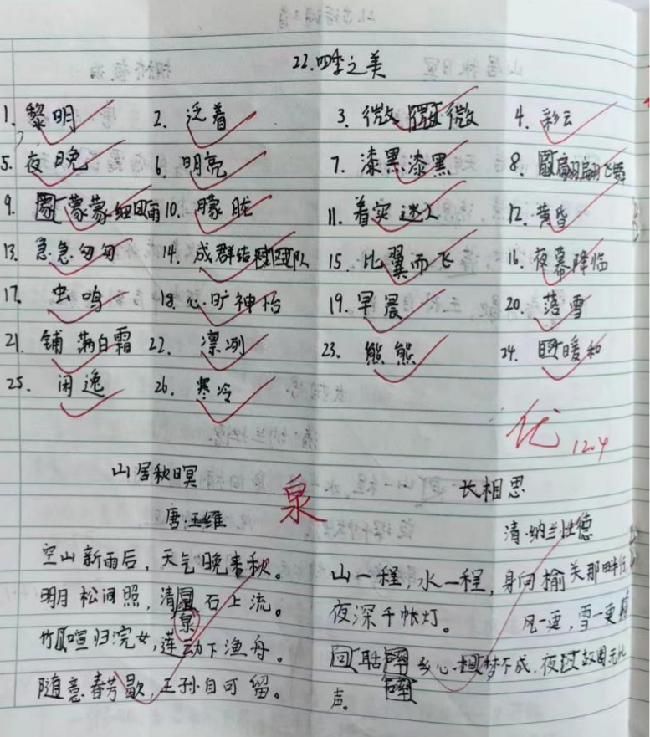 22.四季之美
1. 黎明 2. 泛着 3. 微微 4. 彩云
5. 夜晚 6. 明亮 7. 漆黑漆黑 8. 翩翩飞舞
9. 蒙蒙细雨 10. 朦胧 11. 着实迷人 12. 黄昏
13. 急急匆匆 14. 成群结队 15. 比翼而飞 16. 夜幕降临
17. 虫鸣 18. 心旷神怡 19. 早晨 20. 落雪
21. 铺满白霜 22. 凛冽 23. 熊熊 24. 暖和
25. 闲逸 26. 寒冷
优 12.4
山居秋暝
唐·王维
空山新雨后，天气晚来秋。
明月松间照，清石上流。
泉
竹喧归浣女，莲动下渔舟。
随意春芳歇，王孙自可留。
泉
长相思
清·纳兰性德
山一程，水一程，身向榆关那畔行
夜深千帐灯。
风一更，雪一更
聒碎乡心梦不成，故园无此
声。